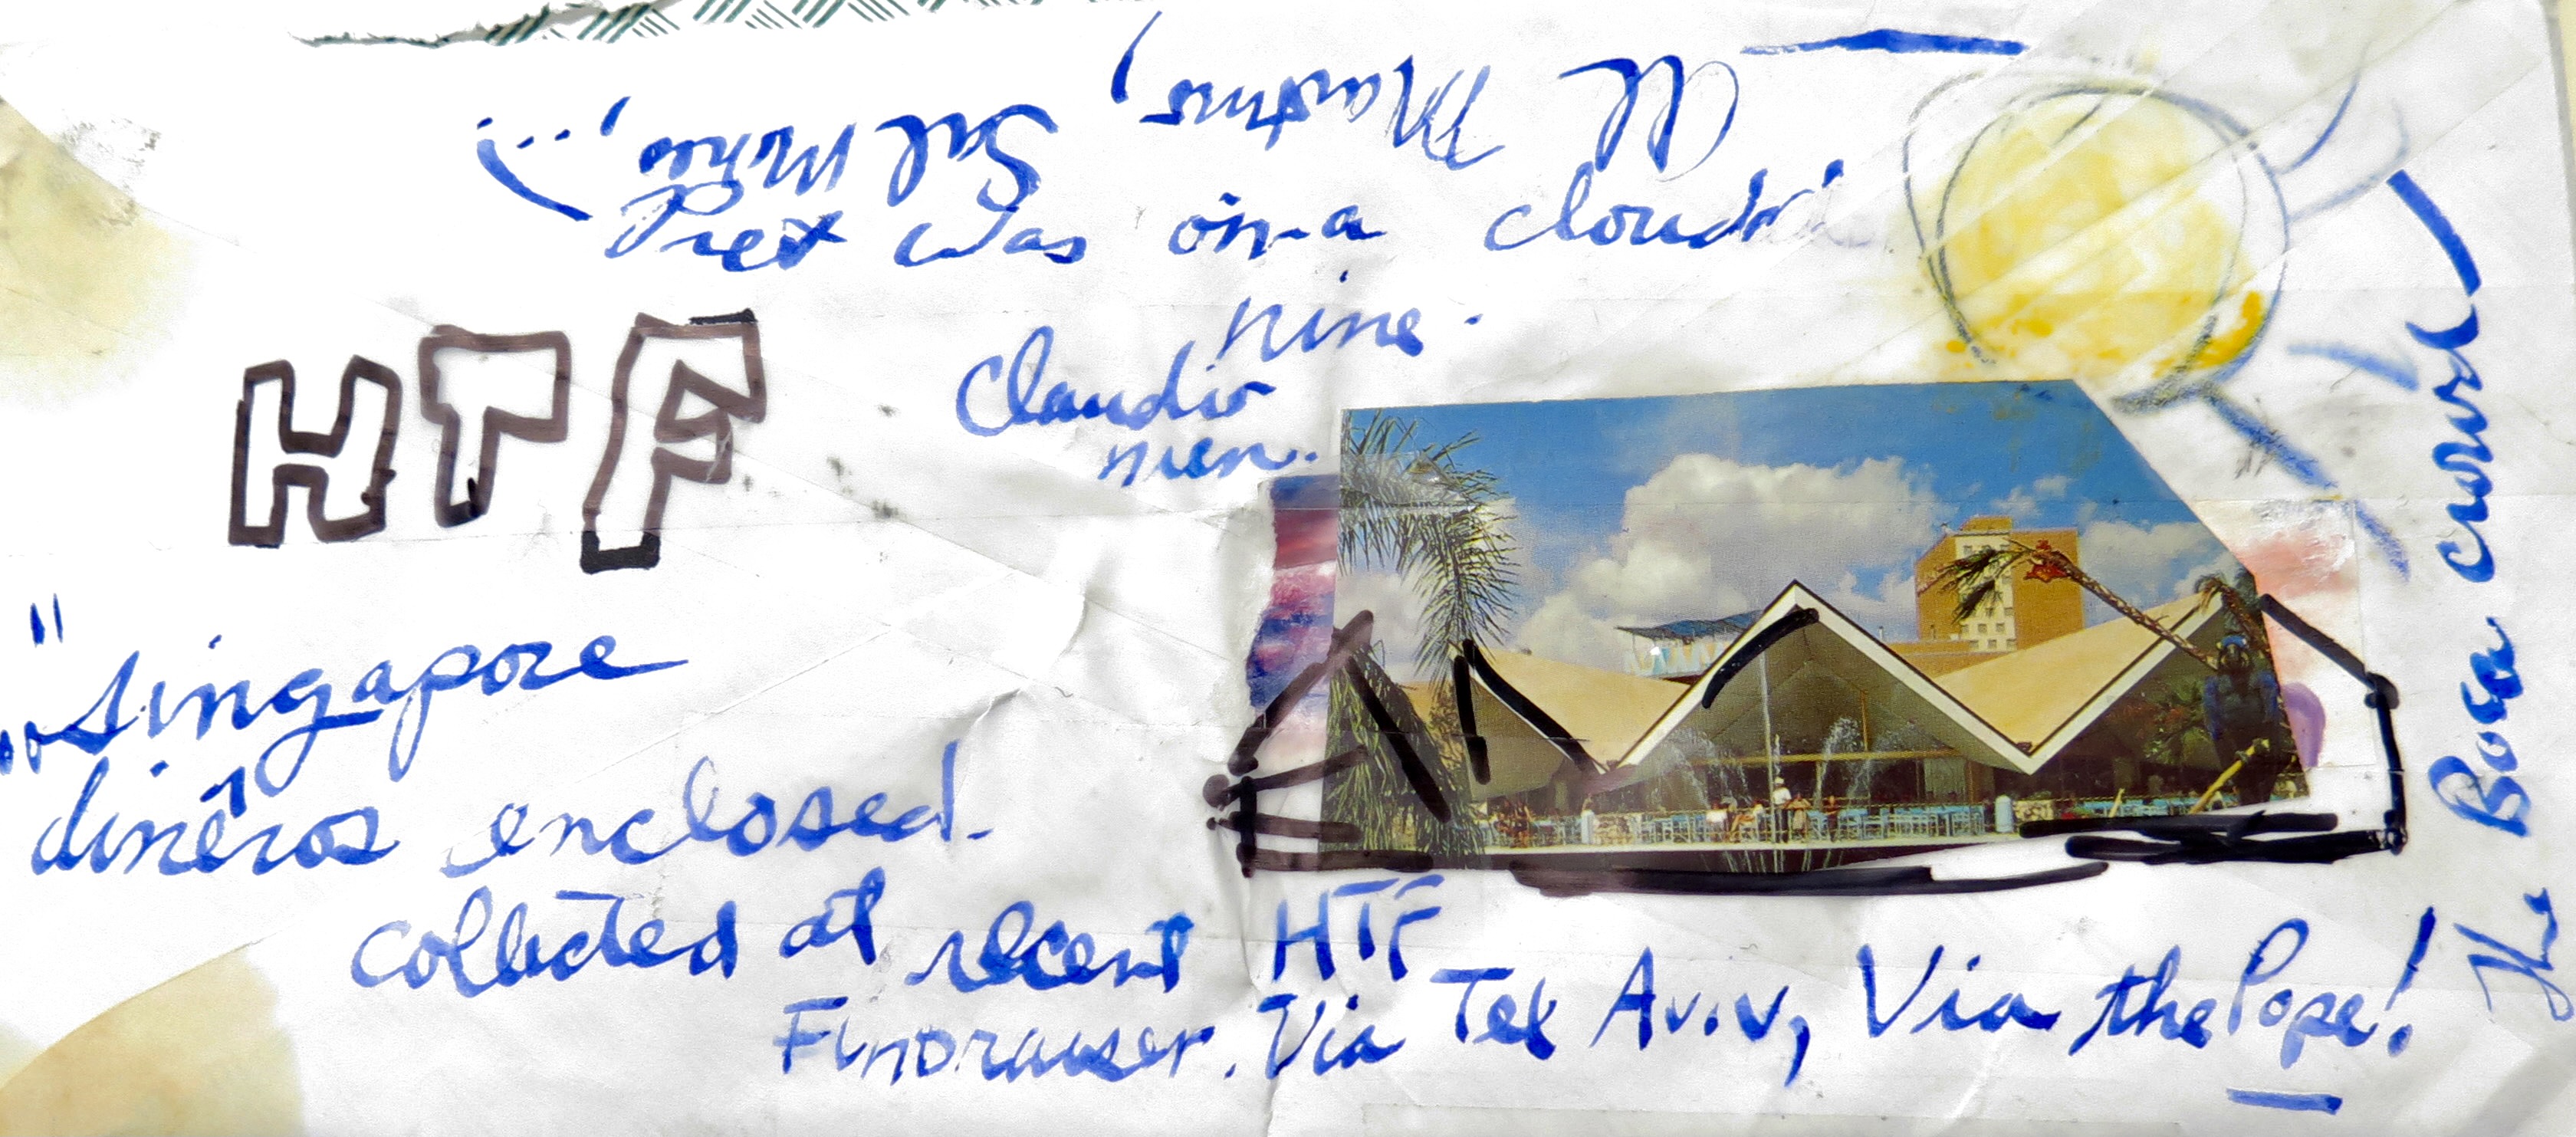 Al Martino,
Sal Mineo, ...)
Prez was on a cloud
nine.
Claudio
men.
HTF
"Singapore
dineros enclosed.
collected at recent HTF
Fundraiser. Via Tel Aviv, Via the Pope!
The Boca crowd